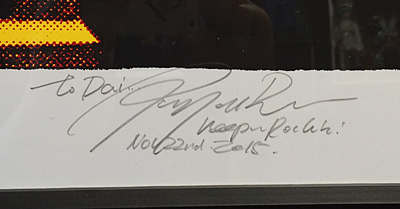 to Dai...
Keep on Rockin!
Nov 22nd. 2015.